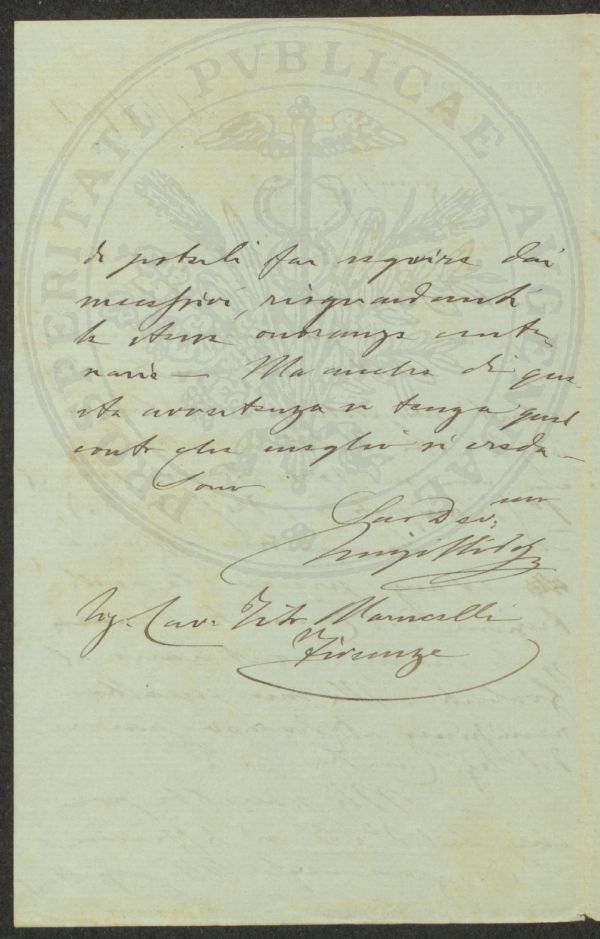 PROSPERITATI PVBLICAE AVGENDAE
di poterli far seguire dai
successivi, risguardanti
le stesse onoranze cente-
narie — Ma anche di que-
sta avvertenza si tenga quel
conto che meglio si creda —
Sono
Suo Dev. mo
Luigi
Sig. Cav. Tito Mamelli
Firenze